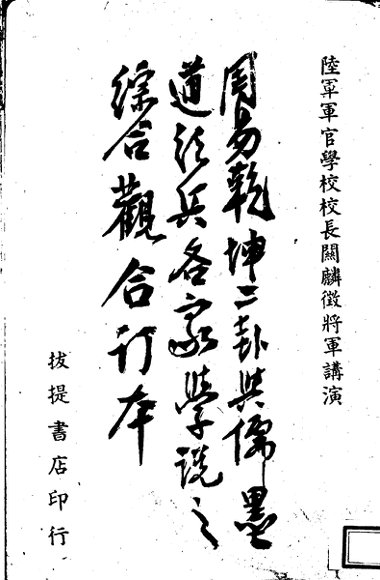 陸軍軍官學校校長關麟徵將軍講演
周易乾坤二卦與儒墨
道法兵各家學說之
綜合觀合订本
拔提書店印行